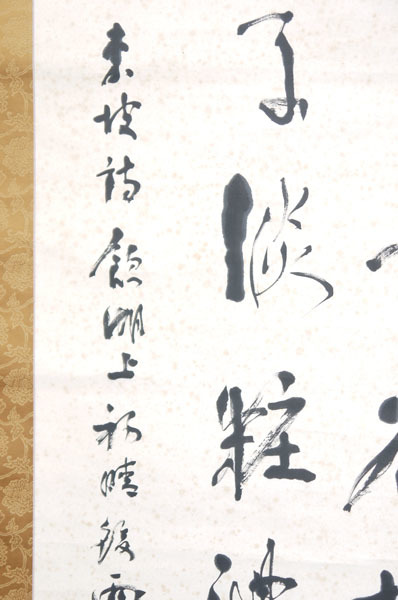 子淡粧濃
東坡詩飲湖上初晴後雨